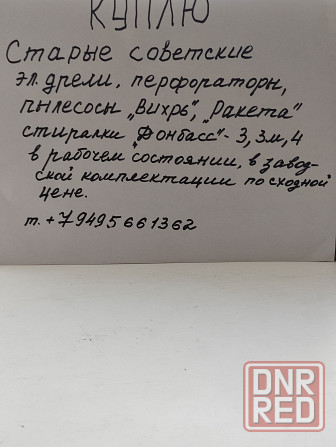 КУПЛЮ
Старые советские
эл. дрели, перфораторы,
пылесосы „Вихрь", „Ракета"
стиралки „Донбасс"- 3, 3м, 4
в рабочем состоянии, в завод-
ской комплектации по сходной
цене.
т. +79495661362
DNR
RED